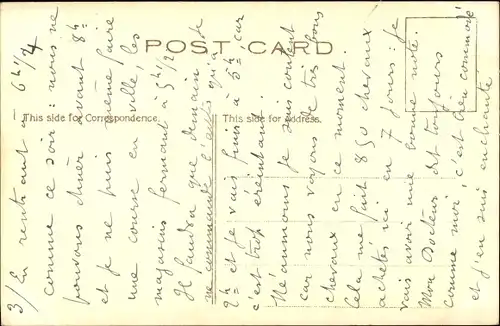 POST CARD
This side for Correspondence.
This side for Address.
3/ En rentrant à 6h 1/4
comme ce soir : nous ne
pouvons dîner avant 8h
et je ne puis même faire
une course en ville, les
magasins fermant à 5h 1/2
Il faudra que demain je
ne commande l'auto qu'à
2h et je vais finir à 5h car
c'est trop éreintant.
Néanmoins je suis content
car nous voyons de très bons
chevaux en ce moment.
Cela me fait 850 chevaux
achetés ici en 7 jours : je
vais avoir une bonne note.
Mon est toujours
comme moi c'est bien commode
et j'en suis enchanté